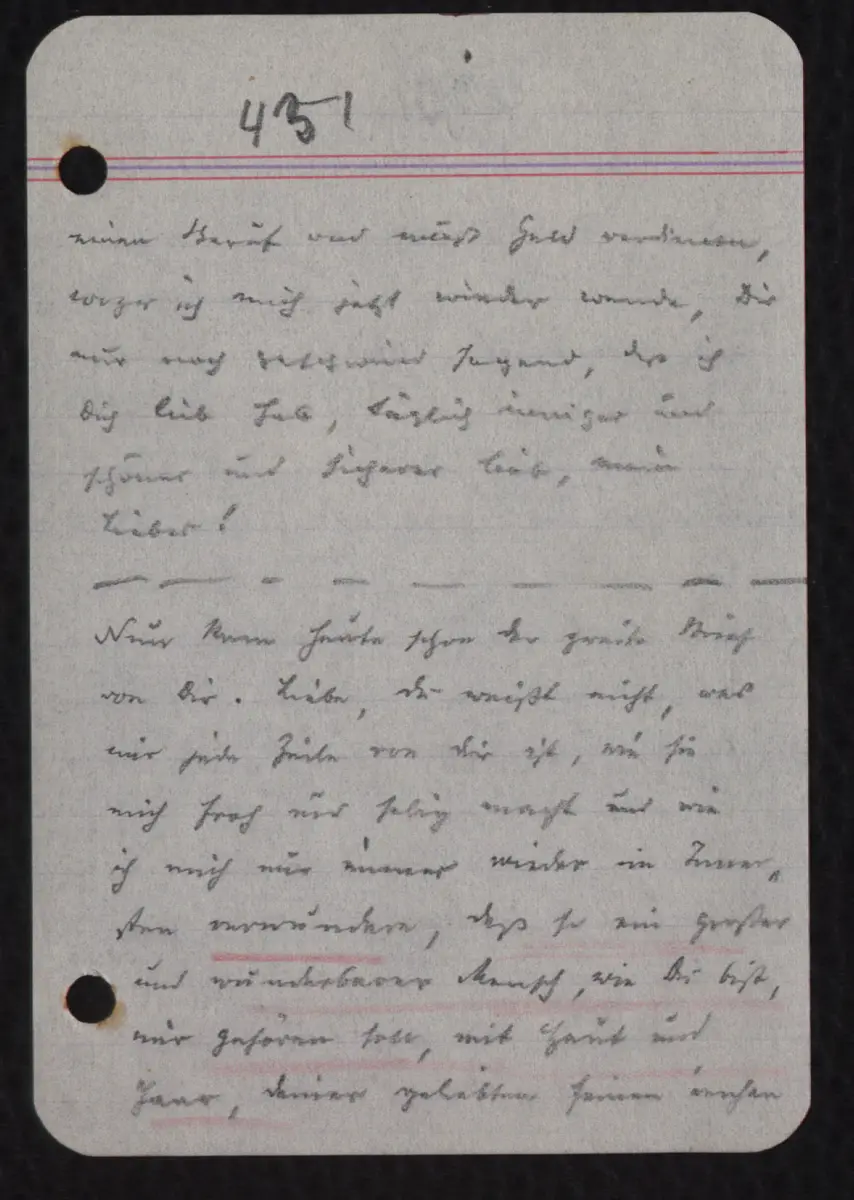 451
einen Beruf und muß Geld verdienen,
wozu ich mich jetzt wieder wende, Dir
nur noch geschwind sagend, daß ich
Dich lieb hab, täglich inniger und
schöner und sicherer lieb, mein
Lieber!
Nun kam heute schon der zweite Brief
von Dir. Liebe, du weißt nicht, was
mir jede Zeile von dir ist, wie sie
mich froh und selig macht und wie
ich mich nur immer wieder im Inner„
sten verwundere, daß so ein großer
und wunderbarer Mensch, wie Du bist,
mir gehören soll, mit Haut und
Haar, deiner geliebten feinen